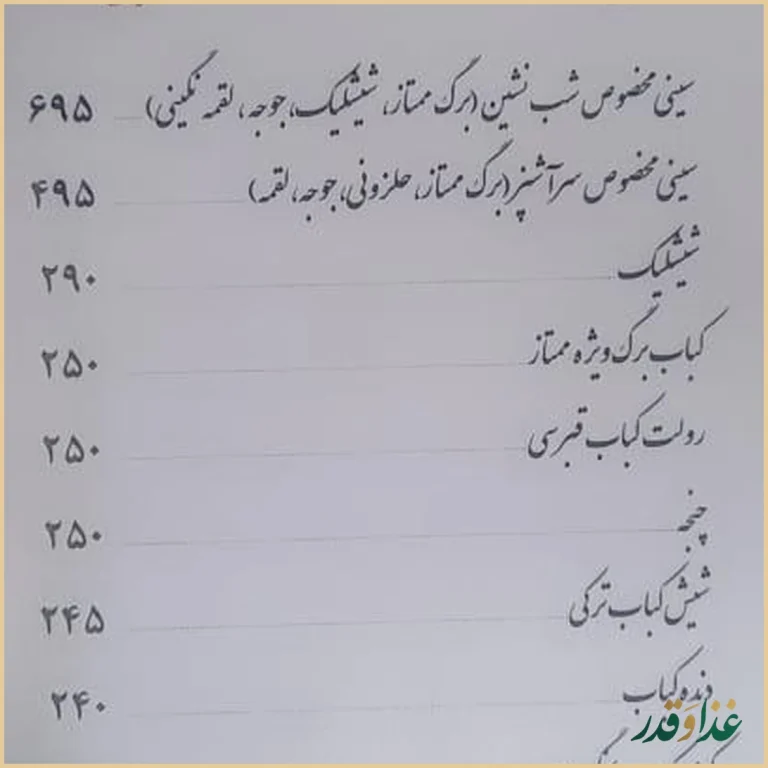 سینی مخصوص شب نشین (برگ ممتاز، شیشلیک، جوجه، لقمه نگینی) ۶۹۵
سینی مخصوص سرآشپز (برگ ممتاز، حلزونی، جوجه، لقمه) ۴۹۵
شیشلیک ۲۹۰
کباب برگ ویژه ممتاز ۲۵۰
رولت کباب قبرسی ۲۵۰
چنجه ۲۵۰
شیش کباب ترکی ۲۴۵
دنده کباب ۲۴۰
غذا و قدر